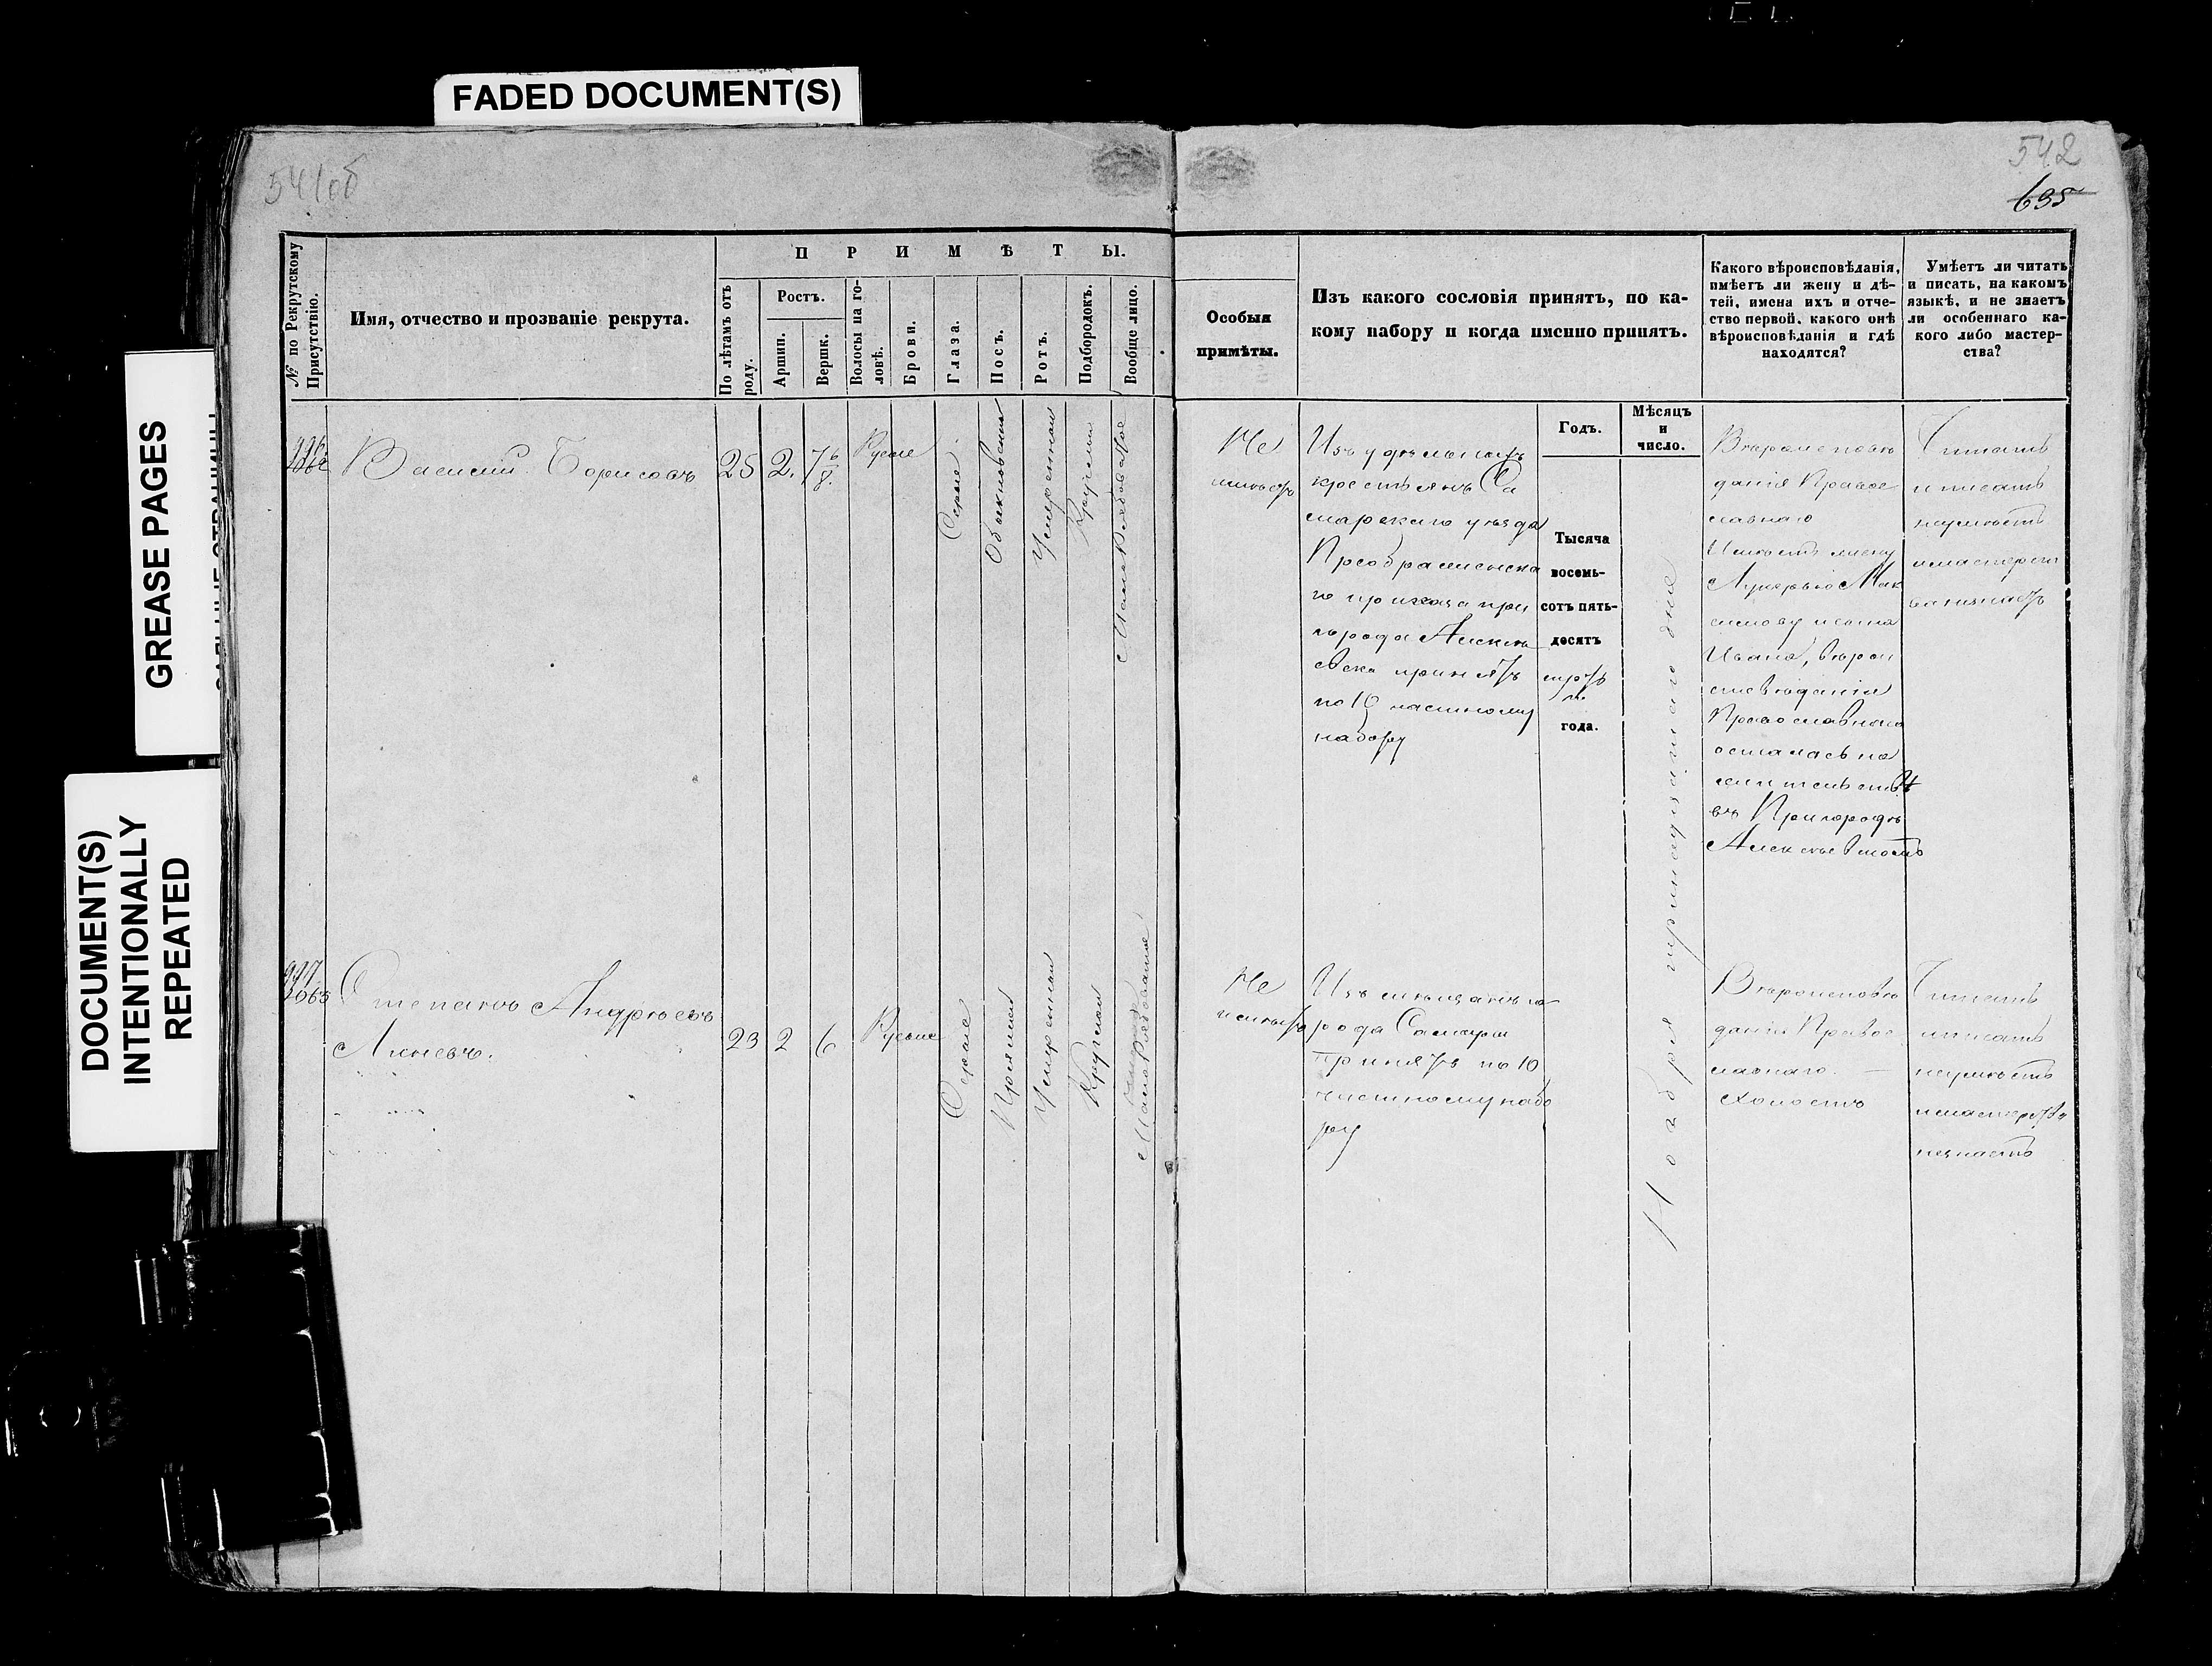 FADED DOCUMENT(S)
GREASE PAGES
DOCUMENT(S)
INTENTIONALLY
REPEATED
541об
542
695
№ по Рекрутскому
Присутствію.
Имя, отчество и прозваніе рекрута.
ПРИМѢТЫ.
По лѣтамъ отъ
роду.
Ростъ.
Аршин.
Вершк.
Волосы на го-
ловѣ.
Брови.
Глаза.
Носъ.
Ротъ.
Подбородокъ.
Вообще лицо.
Особыя
примѣты.
Изъ какого сословія принятъ, по ка-
кому набору и когда именно принятъ.
Какого вѣроисповѣданія,
имѣетъ ли жену и дѣ-
тей, имена ихъ и отче-
ство первой, какого онѣ
вѣроисповѣданія и гдѣ
находятся?
Умѣетъ ли читать
и писать, на какомъ
языкѣ, и не знаетъ
ли особеннаго ка-
кого либо мастер-
ства?
Годъ.
Мѣсяцъ
и
число.
996
Василий Борисовъ
25
2.
7 6/8.
Русые
Серые
Обыкновенный
Умеренный
Круглый
Маловрябоватое
Не
имѣетъ
Изъ удѣльныхъ
крестьянъ Са
марскаго уѣзда
Преображенска
го приказа при
города Алексѣ
евска принятъ
по 10 частному
набору
Тысяча
восемь-
сотъ пять-
десятъ
третьяго
года.
Ноября тринадцатаго дня
Вѣроисповѣ
данія Право
славнаго
Имѣетъ жену
Лукерью Мак
симову и сына
Ивана, вѣрои
сповѣданія
Православнаго
осталась на
жительствѣ
въ Пригородѣ
Алексѣевскомъ
Читать
и писать
неумѣетъ
и мастерст
ва незнаетъ
997
3063
Степанъ Андрѣевъ
Линевъ.
23
2
6
Русые
Серые
Прямой
Умеренный
Круглый
Маловрябоватое
Не
имѣетъ
Изъ мѣщанъ го
рода Самары
принятъ по 10
частному набо
ру
Вѣроисповѣ
данія Право
славнаго.
Холостъ
Читать
и писать
неумѣетъ
и мастерства
незнаетъ